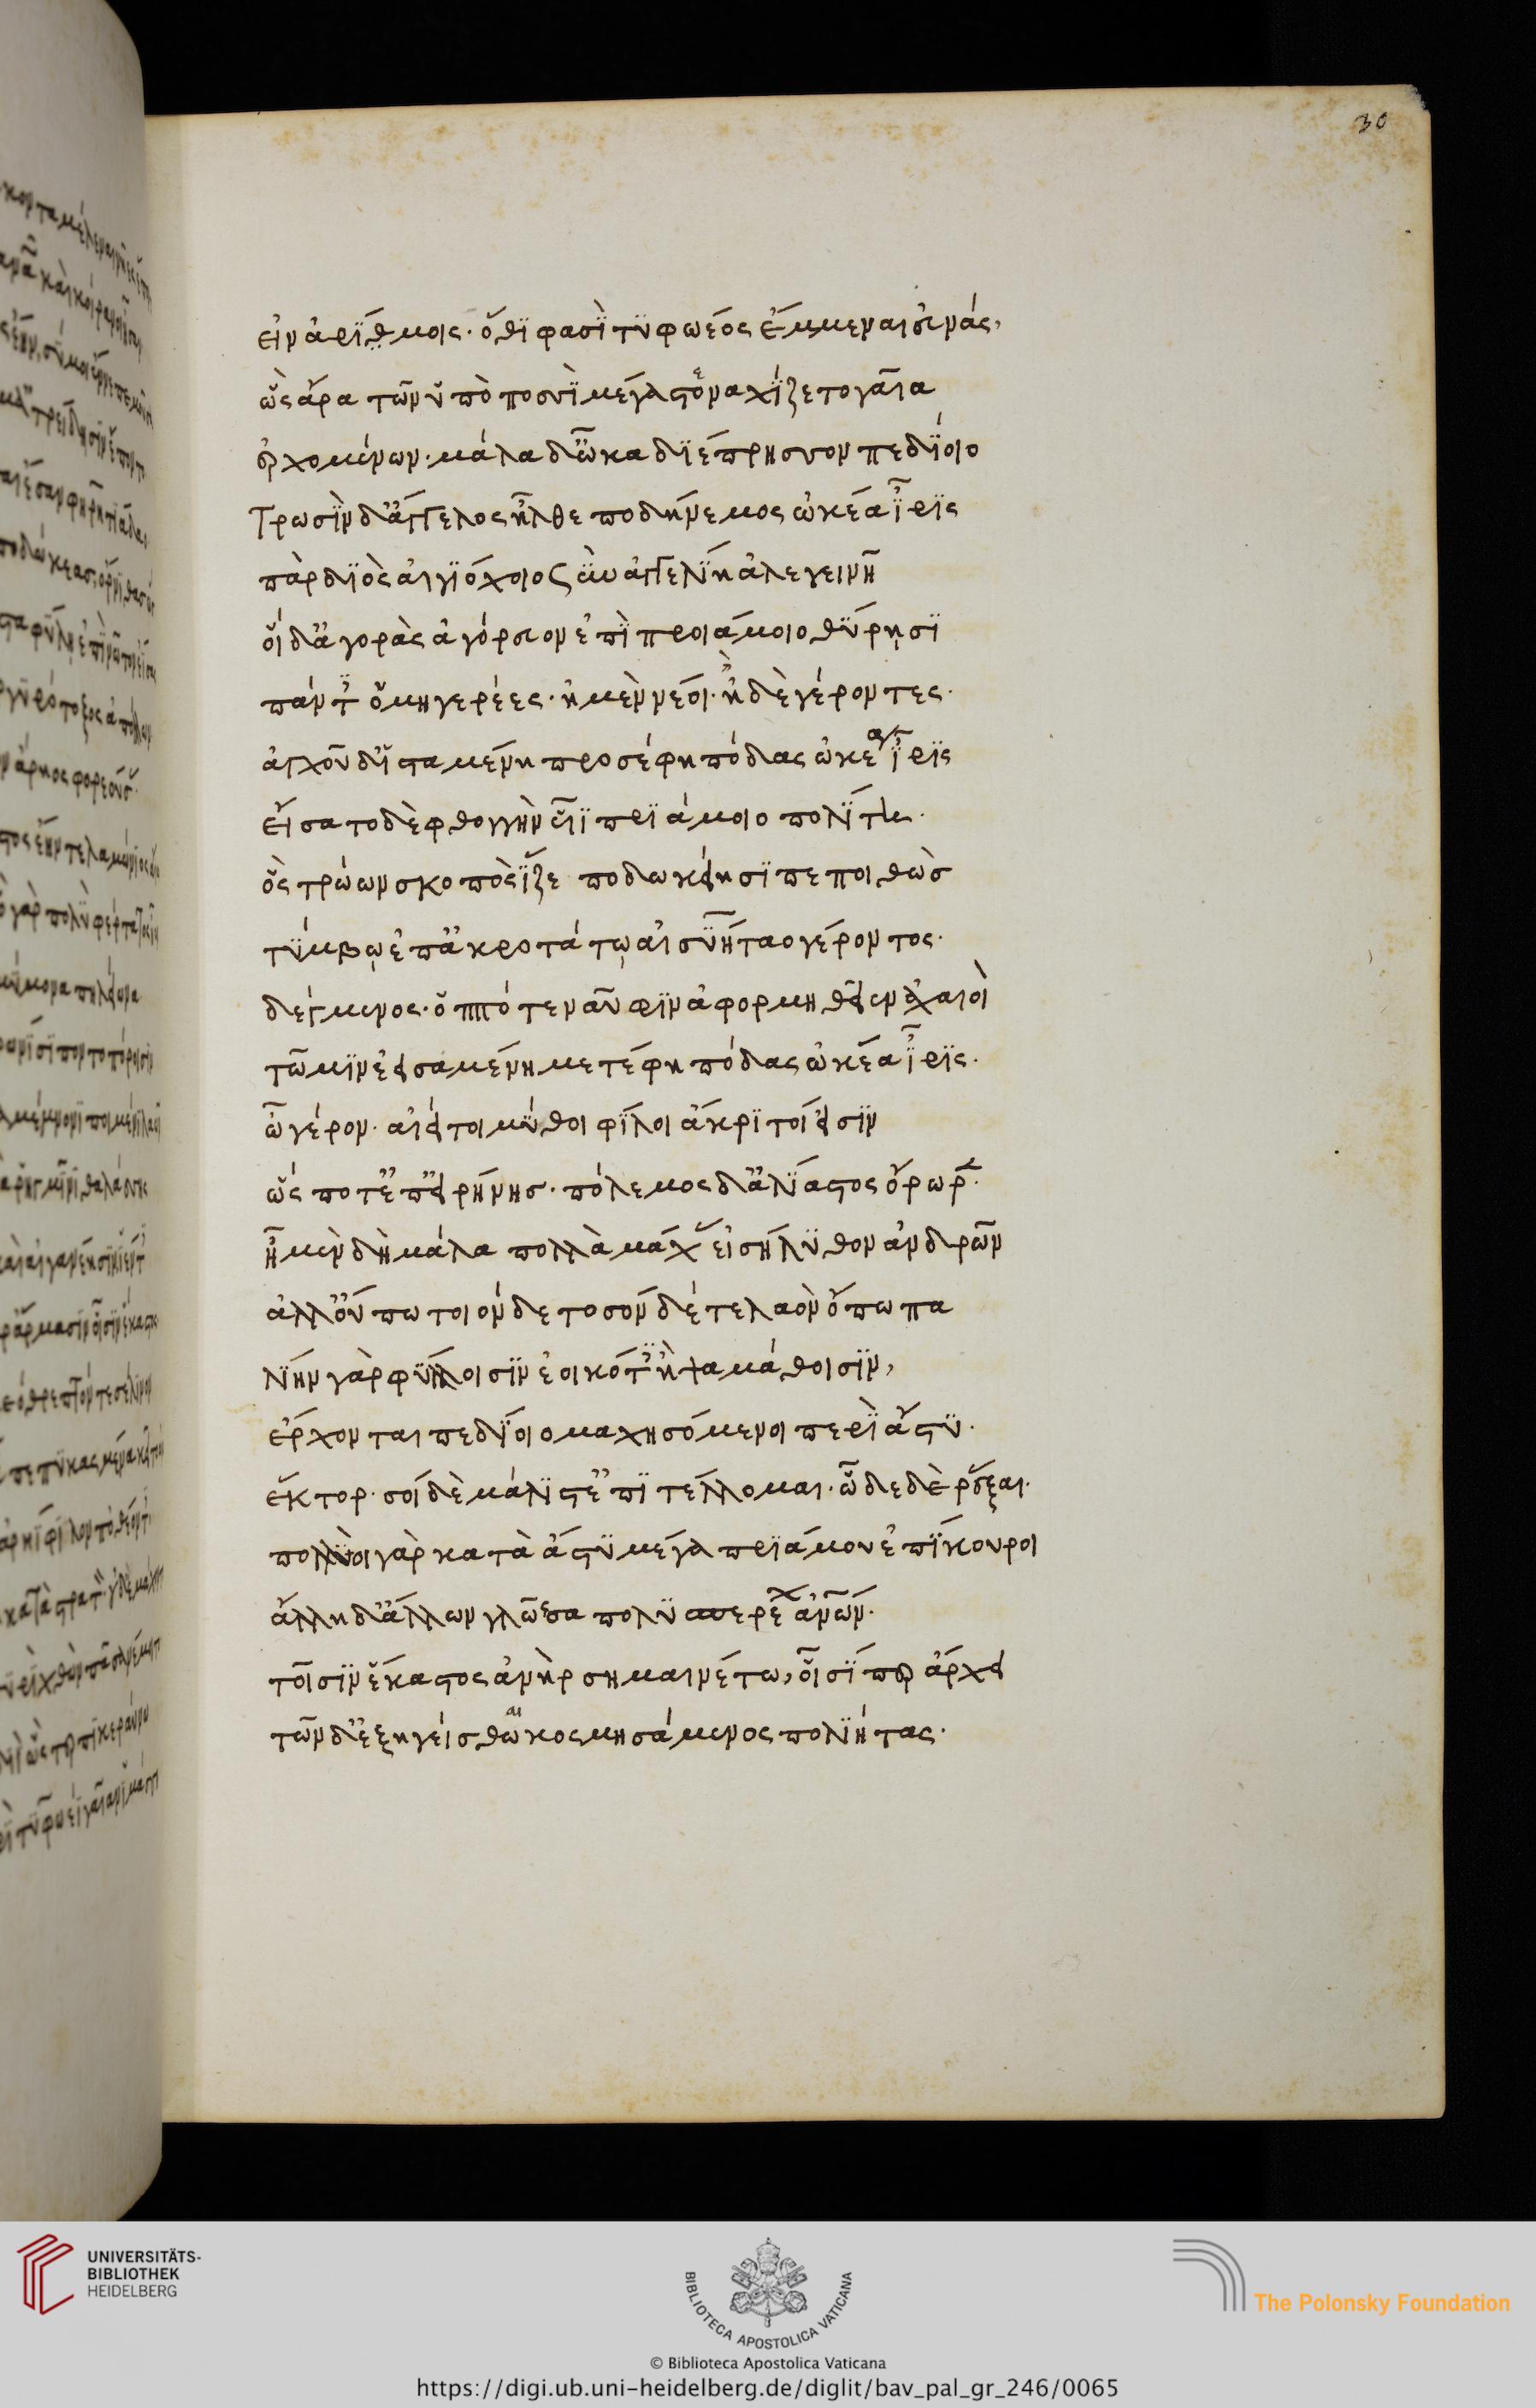 30
εἰν ἀρΐμοις· ὅθϊ φασῒ τϋφωέος ἔμμεναι εὐνάς,
ὣς ἄρα τῶν ὑπὸ ποσσῒ μέγα στοναχΐζετο γαῖα
ἐρχομένων· μάλα δ' ὦκα δϊέπρησσον πεδΐοιο
Τρωσῒν δ' ἄγγελος ἦλθε ποδήνεμος ὠκέα ἶρϊς
πὰρ δϊὸς αἰγϊόχοιο σὺν ἀγγελΐη ἀλεγεινῆ
οἱ δ' ἀγορὰς ἀγόρευον ἐπῒ πριάμοιο θύρησϊ
πάντ' ὁμηγερέες· ἠμὲν νέοι· ἠδὲ γέροντες·
ἀγχοῦ δ' ἱσταμένη προσέφη πόδας ὠκέα ἶρϊς
εἴσατο δὲ φθογγὴν υἷϊ πρϊάμοιο πολΐτη·
ὃς τρώων σκοπὸς ἷζε ποδωκείησϊ πεποιθὼς
τΰμβῳ ἐπ' ἀκροτάτῳ αἰσυήταο γέροντος·
δέγμενος· ὁππότε ναῦφϊν ἀφορμηθεῖεν ἀχαιοὶ
τῶ μϊν ἐεισαμένη μετέφη πόδας ὠκέα ἶρϊς·
ὦ γέρον· αἰεί τοι μῦθοι φΐλοι ἄκρϊτοί εἰσϊν
ὥς ποτ' ἐπ' εἰρήνησ· πόλεμος δ' ἀλΐαστος ὄρωρε·
ἦ μὲν δὴ μάλα πολλὰ μάχας εἰσήλϋθον ἀνδρῶν
ἀλλ' οὔπω τοιόνδε τοσόνδέ τε λαὸν ὄπωπα
λΐην γὰρ φΰλλοισϊν ἐοικότες ἢ ψαμάθοισϊν,
ἔρχονται πεδΐοιο μαχησόμενοι περῒ ἄστϋ·
ἕκτορ· σοὶ δὲ μάλϊστ' ἐπϊτέλλομαι· ὧδε δὲ ῥέξαι·
πολλοὶ γὰρ κατὰ ἄστϋ μέγα πρϊάμου ἐπΐκουροι
ἄλλη δ' ἄλλων γλῶσσα πολϋσπερέων ἀνθρώπων·
τοῖσϊν ἕκαστος ἀνὴρ σημαινέτω, οἷσΐ περ ἄρχει
τῶν δ' ἐξηγείσθω κοσμησάμενος πολϊήτας·
UNIVERSITÄTS-
BIBLIOTHEK
HEIDELBERG
BIBLIOTECA APOSTOLICA VATICANA
The Polonsky Foundation
© Biblioteca Apostolica Vaticana
https://digi.ub.uni-heidelberg.de/diglit/bav_pal_gr_246/0065